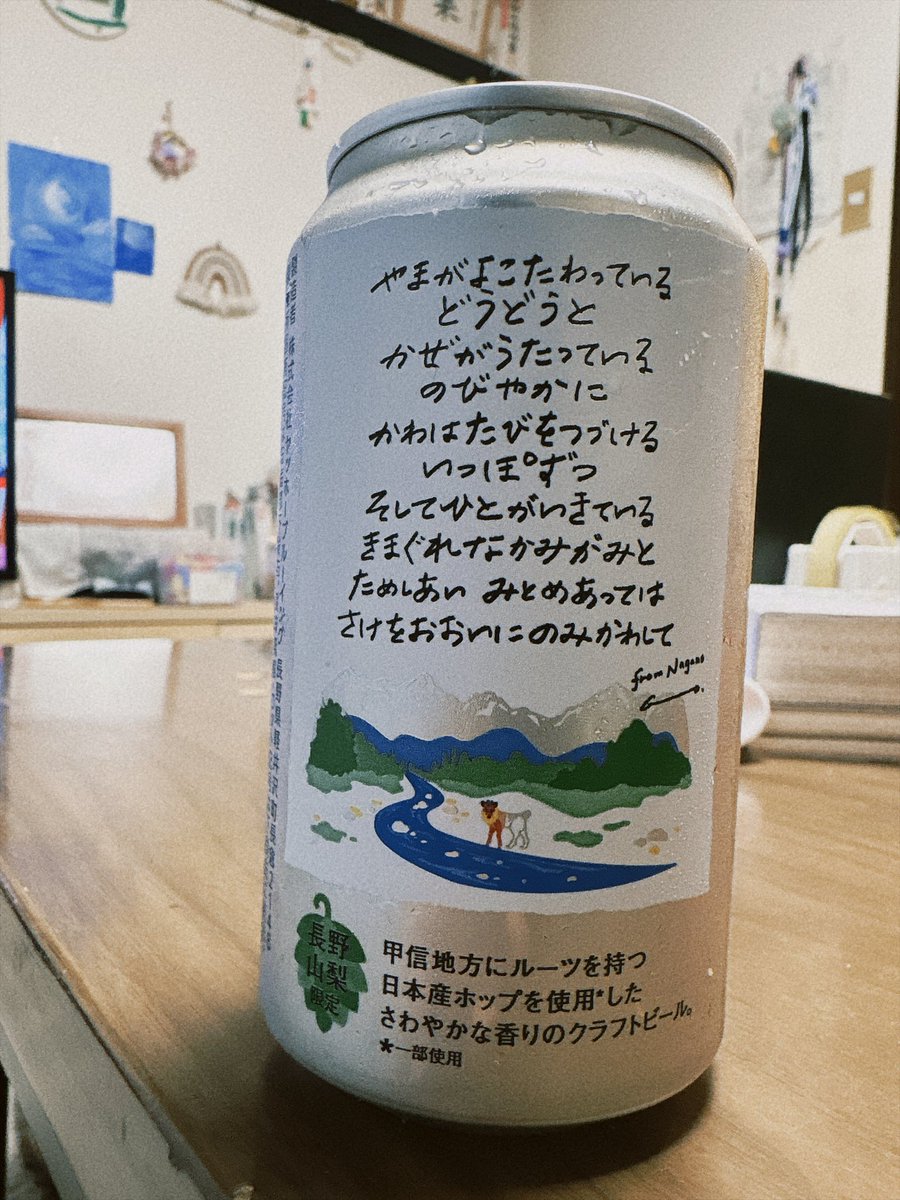 やまがよこたわっている
どうどうと
かぜがうたっている
のびやかに
かわはたびをつづける
いっぽずつ
そしてひとがいきている
きまぐれなかみがみと
ためしあい みとめあっては
さけをおおいにのみかわして
from Nagano
長野
山梨
限定
甲信地方にルーツを持つ
日本産ホップを使用*した
さわやかな香りのクラフトビール。
*一部使用
製造者 株式会社ヤッホーブルーイング 長野県軽井沢町長倉2148